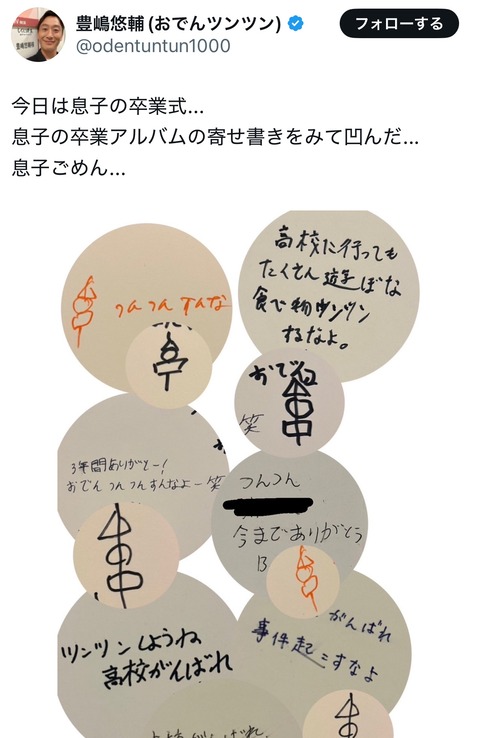 豊嶋悠輔 (おでんツンツン)
フォローする
@odentuntun1000
今日は息子の卒業式...
息子の卒業アルバムの寄せ書きをみて凹んだ...
息子ごめん...
高校に行っても
たくさん遊ぼな
食べ物ツンツン
するなよ。
つんつん すんな
おでん
笑
3年間ありがとー!
おでん つんつんすんなよー笑
つんつん
今までありがとう
ツンツンしようね
高校がんばれ
がんばれ
事件起こすなよ